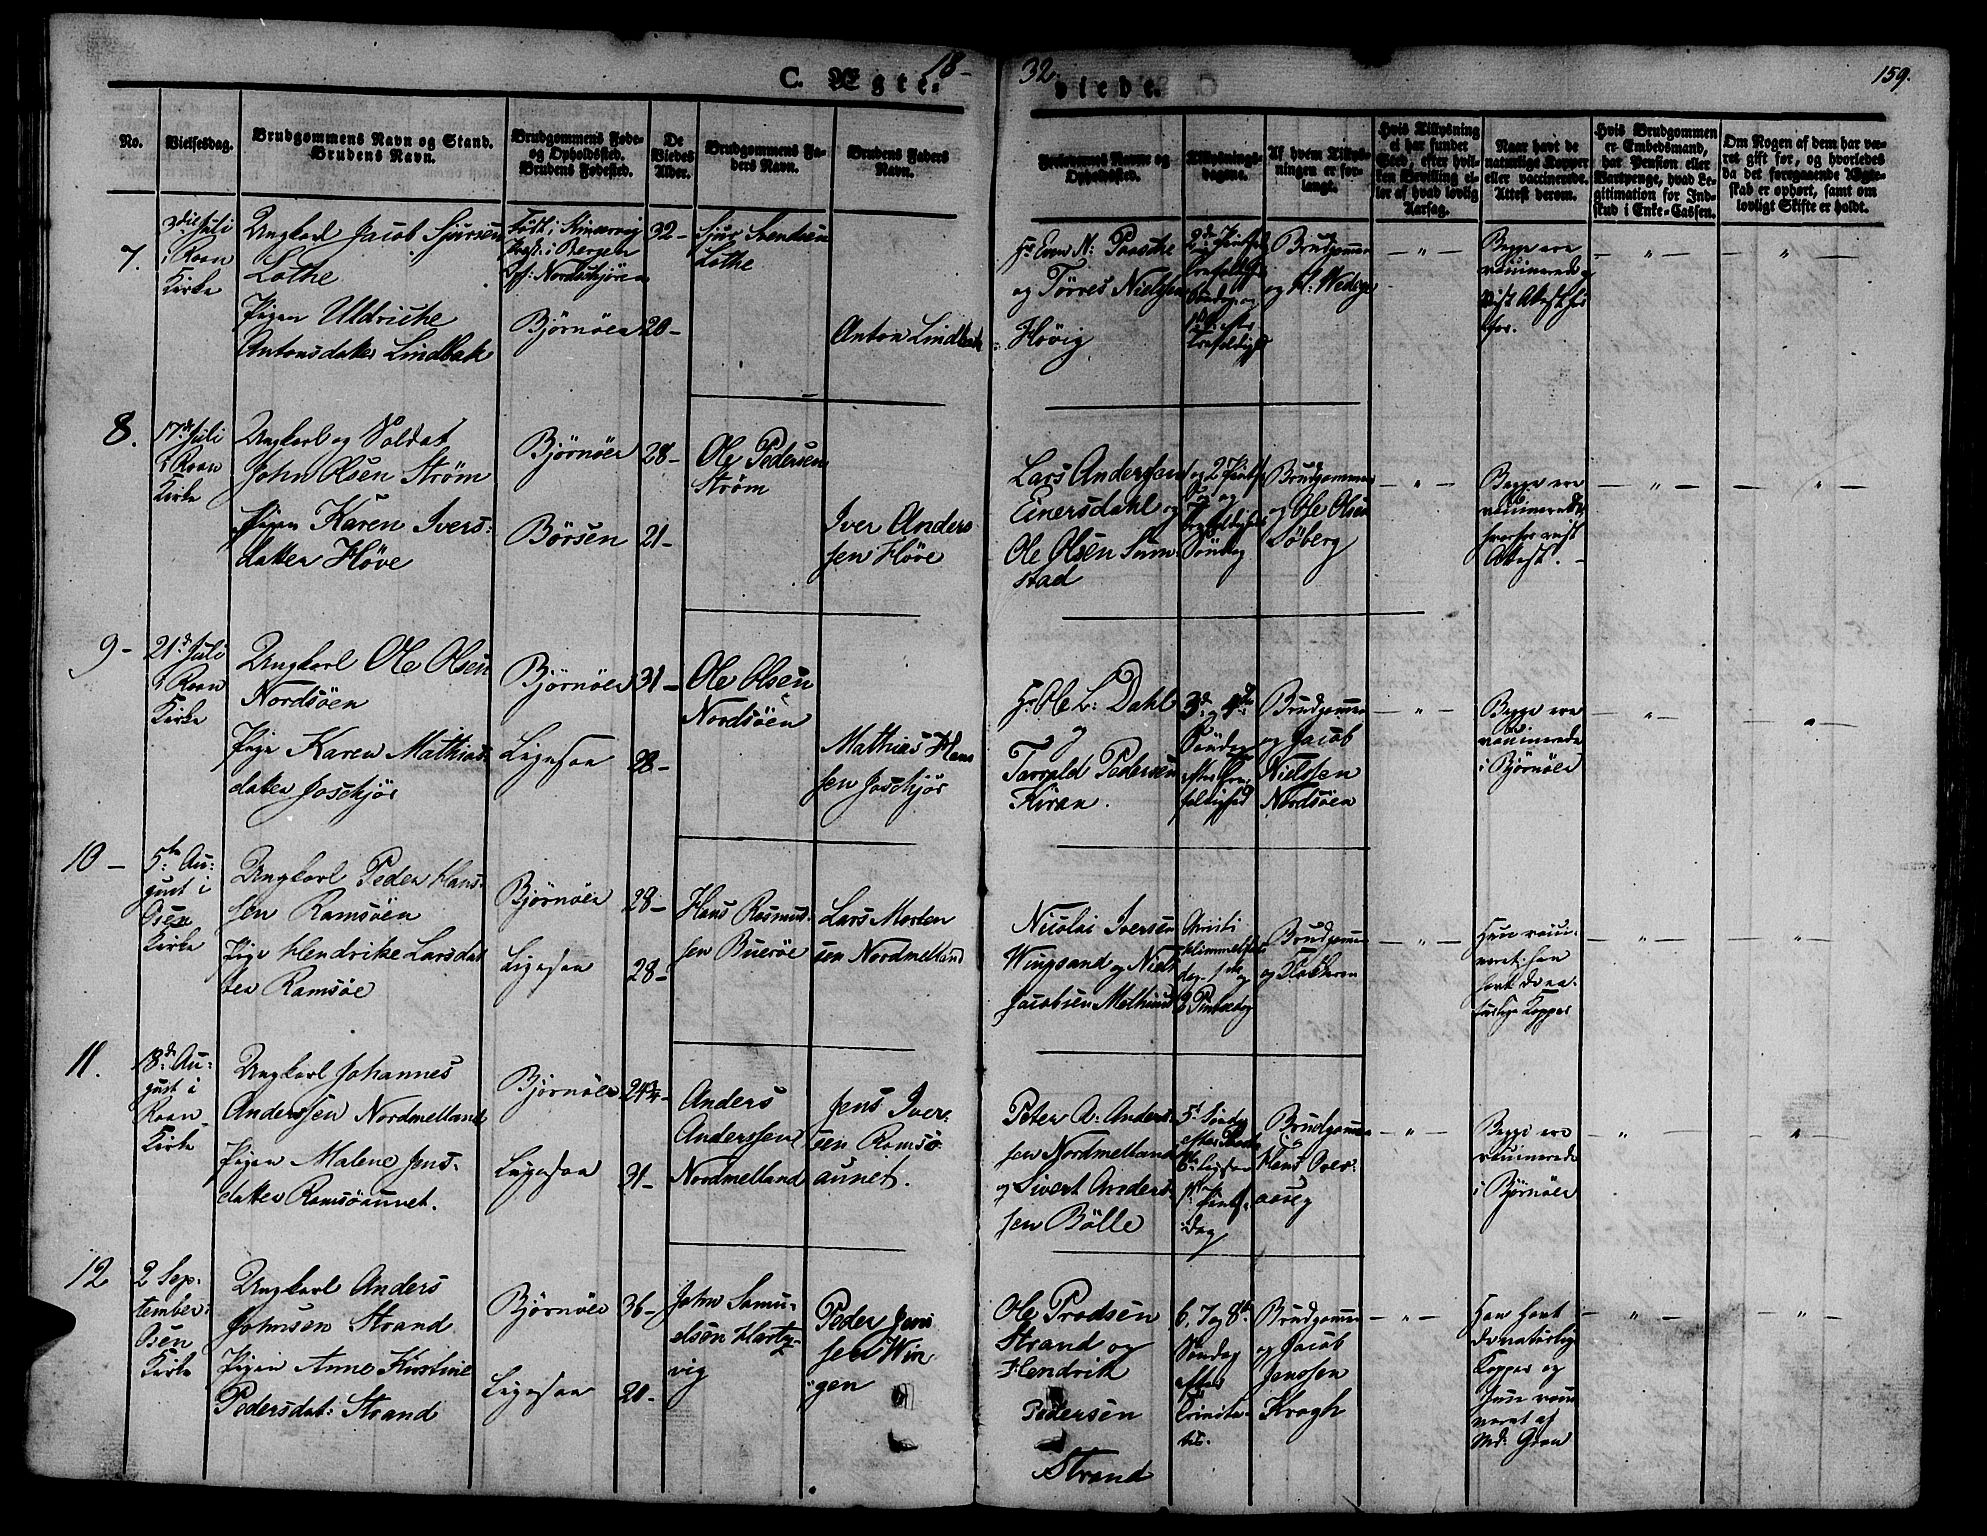 18- 32. 159.
C. Ægte- viede.
No.
Vielsesdag.
Brudgommens Navn og Stand.
Brudens Navn.
Brudgommens Føde-
og Opholdsted.
Brudens Fødested.
De
Viedes
Alder.
Brudgommens Fa-
ders Navn.
Brudens Faders
Navn.
Forlovernes Navne og
Opholdsted.
Tillysnings-
dagene.
Af hvem Tillys-
ningen er for-
langt.
Hvis Tillysning
ei har fundet
Sted, efter hvil-
ken Bevilling el-
ler af hvad lovlig
Aarsag.
Naar havt de
naturlige Kopper
eller vaccinerede.
Attest derom.
Hvis Brudgommen
er Embedsmand,
har Pension eller
Vartpenge, hvad Le-
gitimation for Ind-
skud i Enke-Cassen.
Om Nogen af dem har væ-
ret gift før, og hvorledes
da det foregaaende Ægte-
skab er ophørt, samt om
lovligt Skifte er holdt.
7.
Juli
i Roan
Kirke
Ungkarl Jacob Sjursen
Lothe
Pigen Uldriche
Antonsdatter Lindbak
Født i Kinservig
i Bergen
Bjørnøer
32-
20-
Sjur Svendsen
Lothe
Anton Lindbak
Hr Even N: Paasche
og Tørres Nielsen
Høvig
Brudgommen
og H: Wedege
- " -
Begge ere
vaccinerede
- " -
"
8.
17de Juli
i Roan
Kirke
Ungkarl og Soldat
John Olsen Strøm
Pigen Karen Ivers:
datter Høve
Bjørnøer
Børsen
28-
21-
Ole Pedersen
Strøm
Iver Anders
sen Høve
Lars Anderssen
Einersdahl og
Ole Olsen Sum-
stad
Søndag
Brudgommen
og Ole Olsen
Søberg
- " -
Begge ere
vaccinerede
hvorfor vist
Attest. -
- " -
- " -
9-
21de Juli
i Roan
Kirke
Ungkarl Ole Olsen
Nordsøen
Pige Karen Mathias-
datter Joschjør
Bjørnøer
Ligesaa
31-
28-
Ole Olsen
Nordsøen
Mathias Hans
sen Joschjør
Hr Ole L: Dahl
og
Tarald Pedersen
Kiran.
3de og 4de
Søndag
efter Tre-
foldighed
Brudgommen
og Jacob
Nielssen
Nordsøen
- " -
Begge ere
vaccinerede
i Bjørnøer
- " -
- " -
10-
5te Au-
gust i
Osen
Kirke
Ungkarl Peder Hans-
sen Ramsøen
Pige Hendrike Larsdat
ter Ramsøe
Bjørnøer
Ligesaa
28-
28-
Hans Rasmus-
sen Buerøe
Lars Morten
sen Nordmelland
Nicolai Iversen
Wingsand og Niels
Jacobsen
Christi
Himmelfarts
dag, 1ste og
2 Pintsedag
Brudgommen
og Klokkeren
- " -
Hun vacci-
neret, han
havt de na-
turlige Kopper
- " -
"
11.
18de Au-
gust i
Roan
Kirke
Ungkarl Johannes
Anderssen Nordmelland
Pigen Malene Jens-
datter Ramsøaunet.
Bjørnøer
Ligesaa
24¾-
31-
Anders
Anderssen
Nordmelland
Jens Iver-
sen Ramsø
aunet.
Peter A: Anders-
sen Nordmelland
og Sivert Anders-
sen Bølle
5te Søndag
efter Paaske
Dag
Brudgommen
- " -
Begge ere
vaccinerede
i Bjørnøer
- " -
- " -
12
2 Sep-
tember
Osen
Kirke
Ungkarl Anders
Johnsen Strand
Pigen Anne Kirstine
Pedersdat: Strand
Bjørnøer
Ligesaa
36-
20-
John Samu-
elsen Hartv-
vig
Peder Jens
sen Win
gen
Ole Prodsen
Strand og
Hendrik
Pedersen
Strand
6. 7 og 8de
Søndag
efter
Trinita-
tis.
Brudgommen
og Jacob
Jenssen
Krogh
- " -
Han havt
de naturlig
Kopper og
Hun vacci
neret af
Md: Graan
- " -
- " -